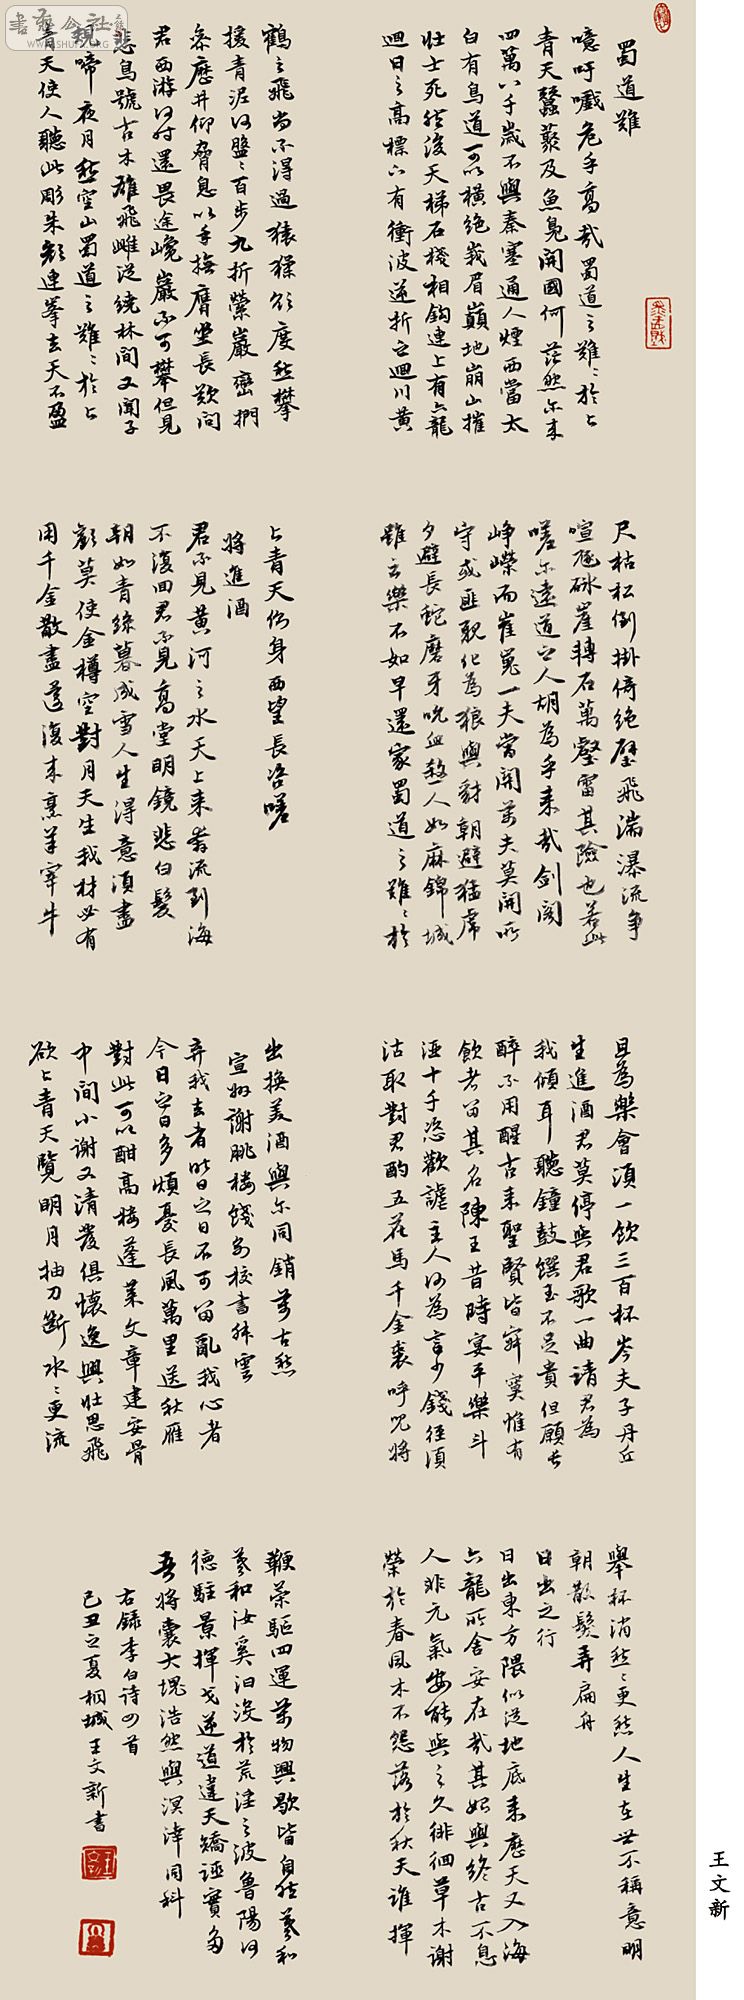 蜀道難
噫吁嚱危乎高哉蜀道之難〻於上
青天蠶叢及魚鳧開國何茫然尔来
四萬八千歲不與秦塞通人煙西當太
白有鳥道可以橫絕峨眉巔地崩山摧
壯士死然後天梯石棧相鈎連上有六龍
迴日之高標下有衝波逆折之迴川黃
鶴之飛尚不得過猿猱欲度愁攀
援青泥何盤〻百步九折縈巖巒捫
參歷井仰脅息以手撫膺坐長歎問
君西游何时還畏途巉巖不可攀但見
悲鳥號古木雄飛雌從繞林間又聞子
規啼夜月愁空山蜀道之難〻於上
青天使人聽此彫朱顏連峯去天不盈
尺枯松倒掛倚絕壁飛湍瀑流争
喧豗砯崖轉石萬壑雷其險也若此
嗟尔遠道之人胡為乎来哉劍閣
崢嶸而崔嵬一夫當開萬夫莫開所
守或匪親化為狼與豺朝避猛虎
夕避長蛇磨牙吮血殺人如麻錦城
雖云樂不如早還家蜀道之難〻於
上青天側身西望長咨嗟
將進酒
君不見黃河之水天上来奔流到海
不復回君不見高堂明鏡悲白髮
朝如青絲暮成雪人生得意須盡
歡莫使金樽空對月天生我材必有
用千金散盡還復来烹羊宰牛
且為樂會須一飲三百杯岑夫子丹丘
生進酒君莫停與君歌一曲請君為
我傾耳聽鐘鼓饌玉不足貴但願長
醉不用醒古来聖賢皆寂寞惟有
飲者留其名陳王昔時宴平樂斗
酒十千恣歡謔主人何為言少錢徑須
沽取對君酌五花馬千金裘呼兒將
出換美酒與尔同銷萬古愁
宣州謝朓樓餞別校書叔雲
弃我去者昨日之日不可留亂我心者
今日之日多煩憂長風萬里送秋雁
對此可以酣高樓蓬萊文章建安骨
中间小謝又清發俱懷逸興壯思飛
欲上青天覽明月抽刀斷水〻更流
舉杯消愁〻更愁人生在世不稱意明
朝散髮弄扁舟
日出之行
日出東方隈似從地底来歷天又入海
六龍所舍安在哉其始與終古不息
人非元氣安能與之久徘徊草木謝
榮於春風木不怨落於秋天誰揮
鞭策驅四運萬物興歇皆自然羲和
羲和汝奚汩没於荒淫之波魯陽何
德駐景揮戈逆道違天矯誣實多
吾將囊大塊浩然與溟涬同科
右錄李白詩四首
己丑之夏桐城王文新書
王文新